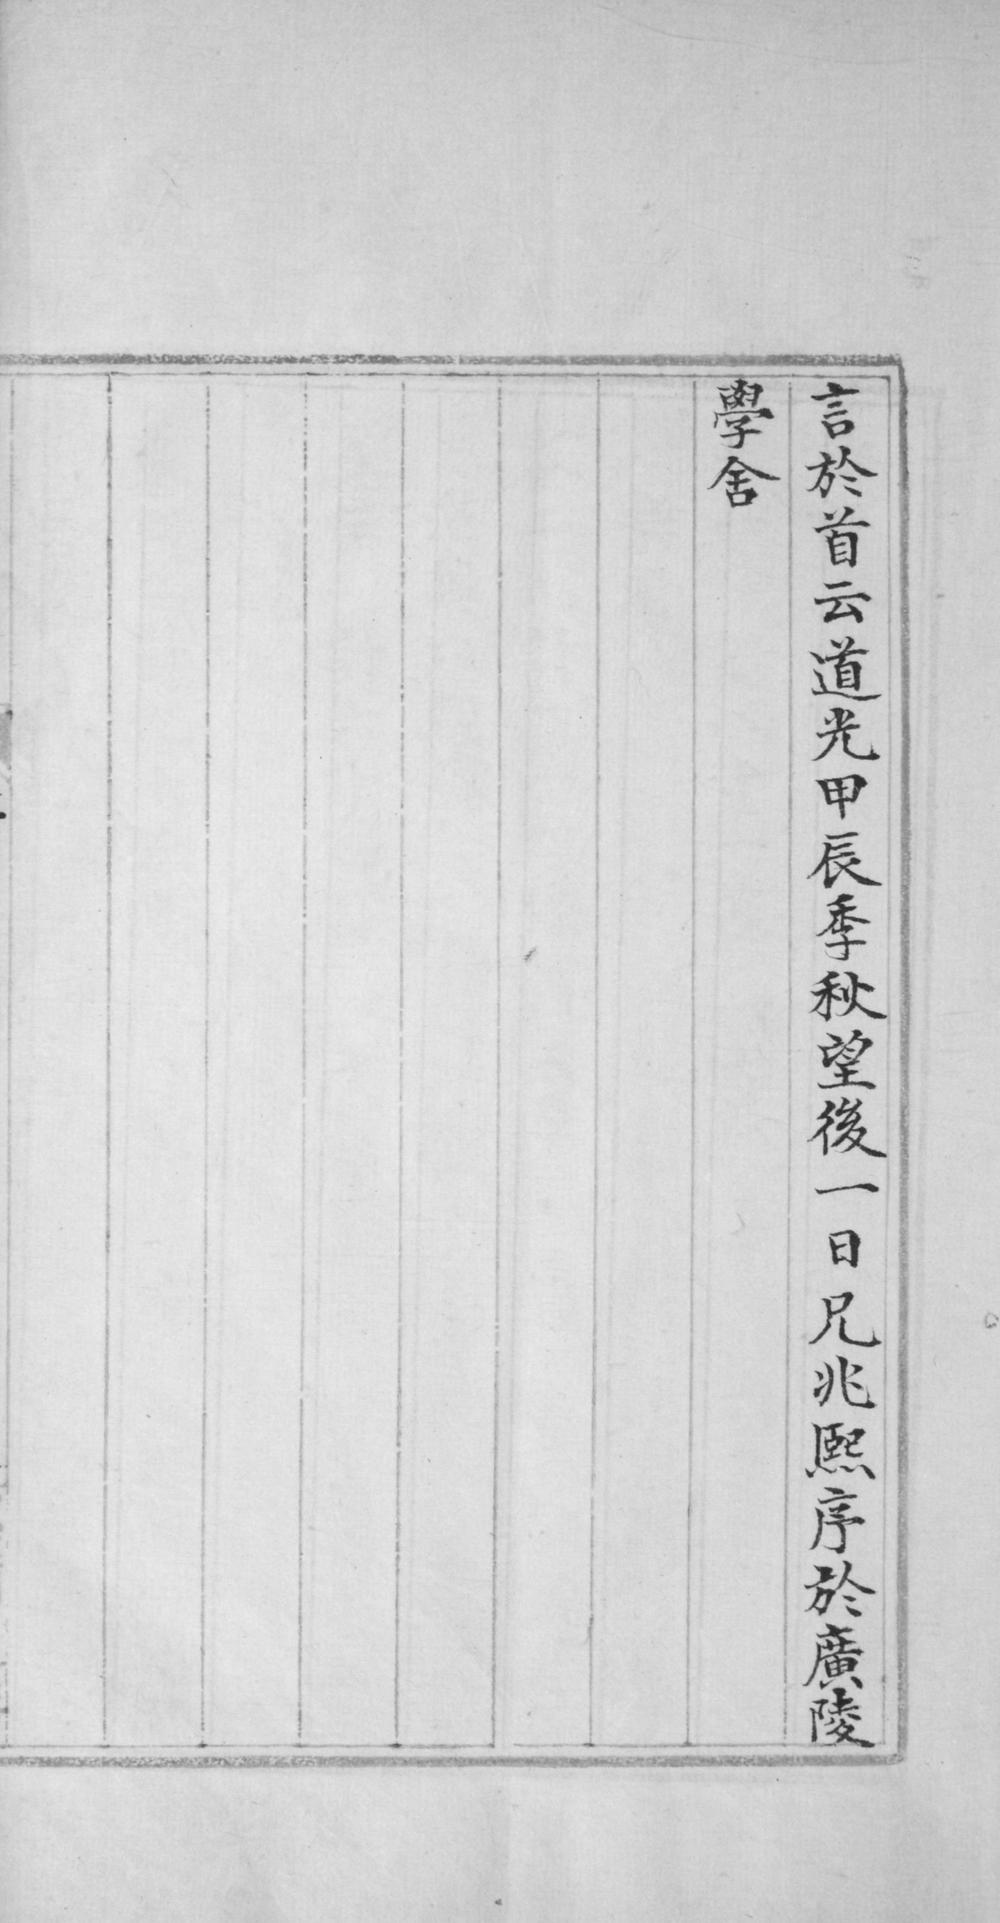 言於首云道光甲辰季秋望後一日兄兆熙序於廣陵
學舍